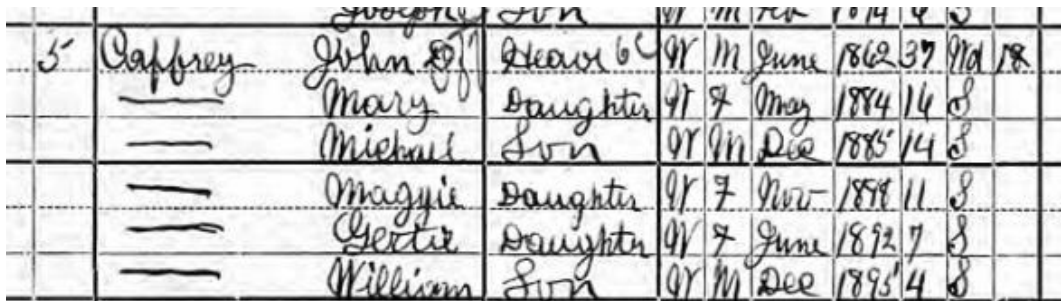 Joseph Son W M Feb S
5 Caffrey John Head W M June 1862 37 Wd 18
— Mary Daughter W F May 1884 16 S
— Michael Son W M Dec 1885 14 S
— Maggie Daughter W F Nov 1888 11 S
— Gertie Daughter W F June 1892 7 S
— William Son W M Dec 1895 4 S